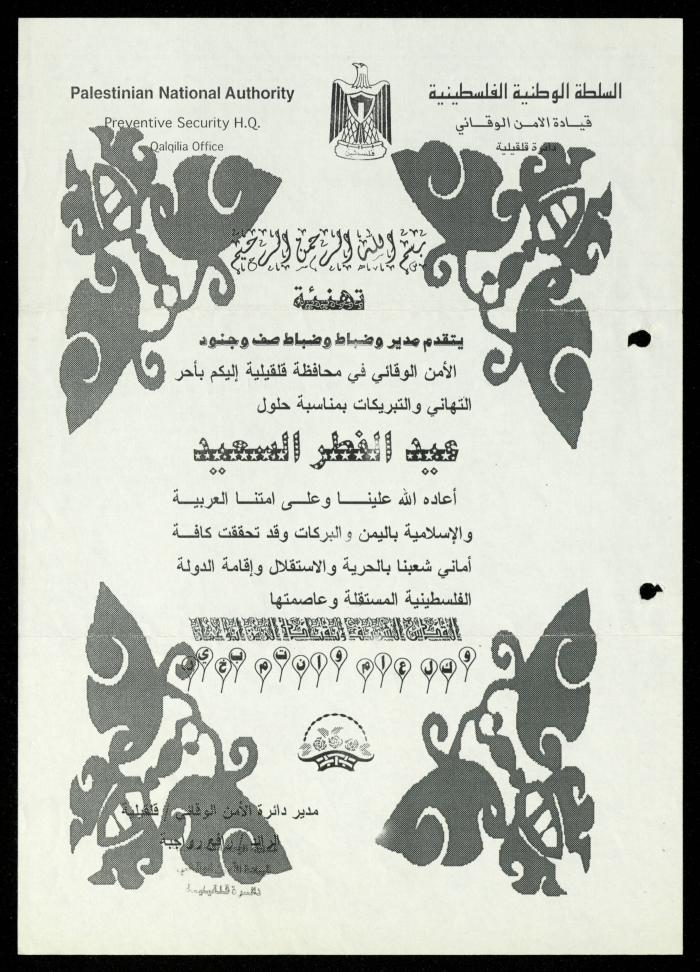 Palestinian National Authority
السلطة الوطنية الفلسطينية
Preventive Security H.Q.
قيادة الامن الوقائي
Qalqilia Office
دائرة قلقيلية
فلسطين
بسم الله الرحمن الرحيم
تهنئة
يتقدم مدير وضباط وضباط صف وجنود
الأمن الوقائي في محافظة قلقيلية إليكم بأحر
التهاني والتبريكات بمناسبة حلول
عيد الفطر السعيد
أعاده الله علينا وعلى امتنا العربية
والإسلامية باليمن والبركات وقد تحققت كافة
أماني شعبنا بالحرية والاستقلال وإقامة الدولة
الفلسطينية المستقلة وعاصمتها
القدس الشريف
وكل عام وانتم بخير
مدير دائرة الأمن الوقائي / قلقيلية
الرائد / رافع رواجبة
قيادة الأمن الوقائي
دائرة قلقيلية